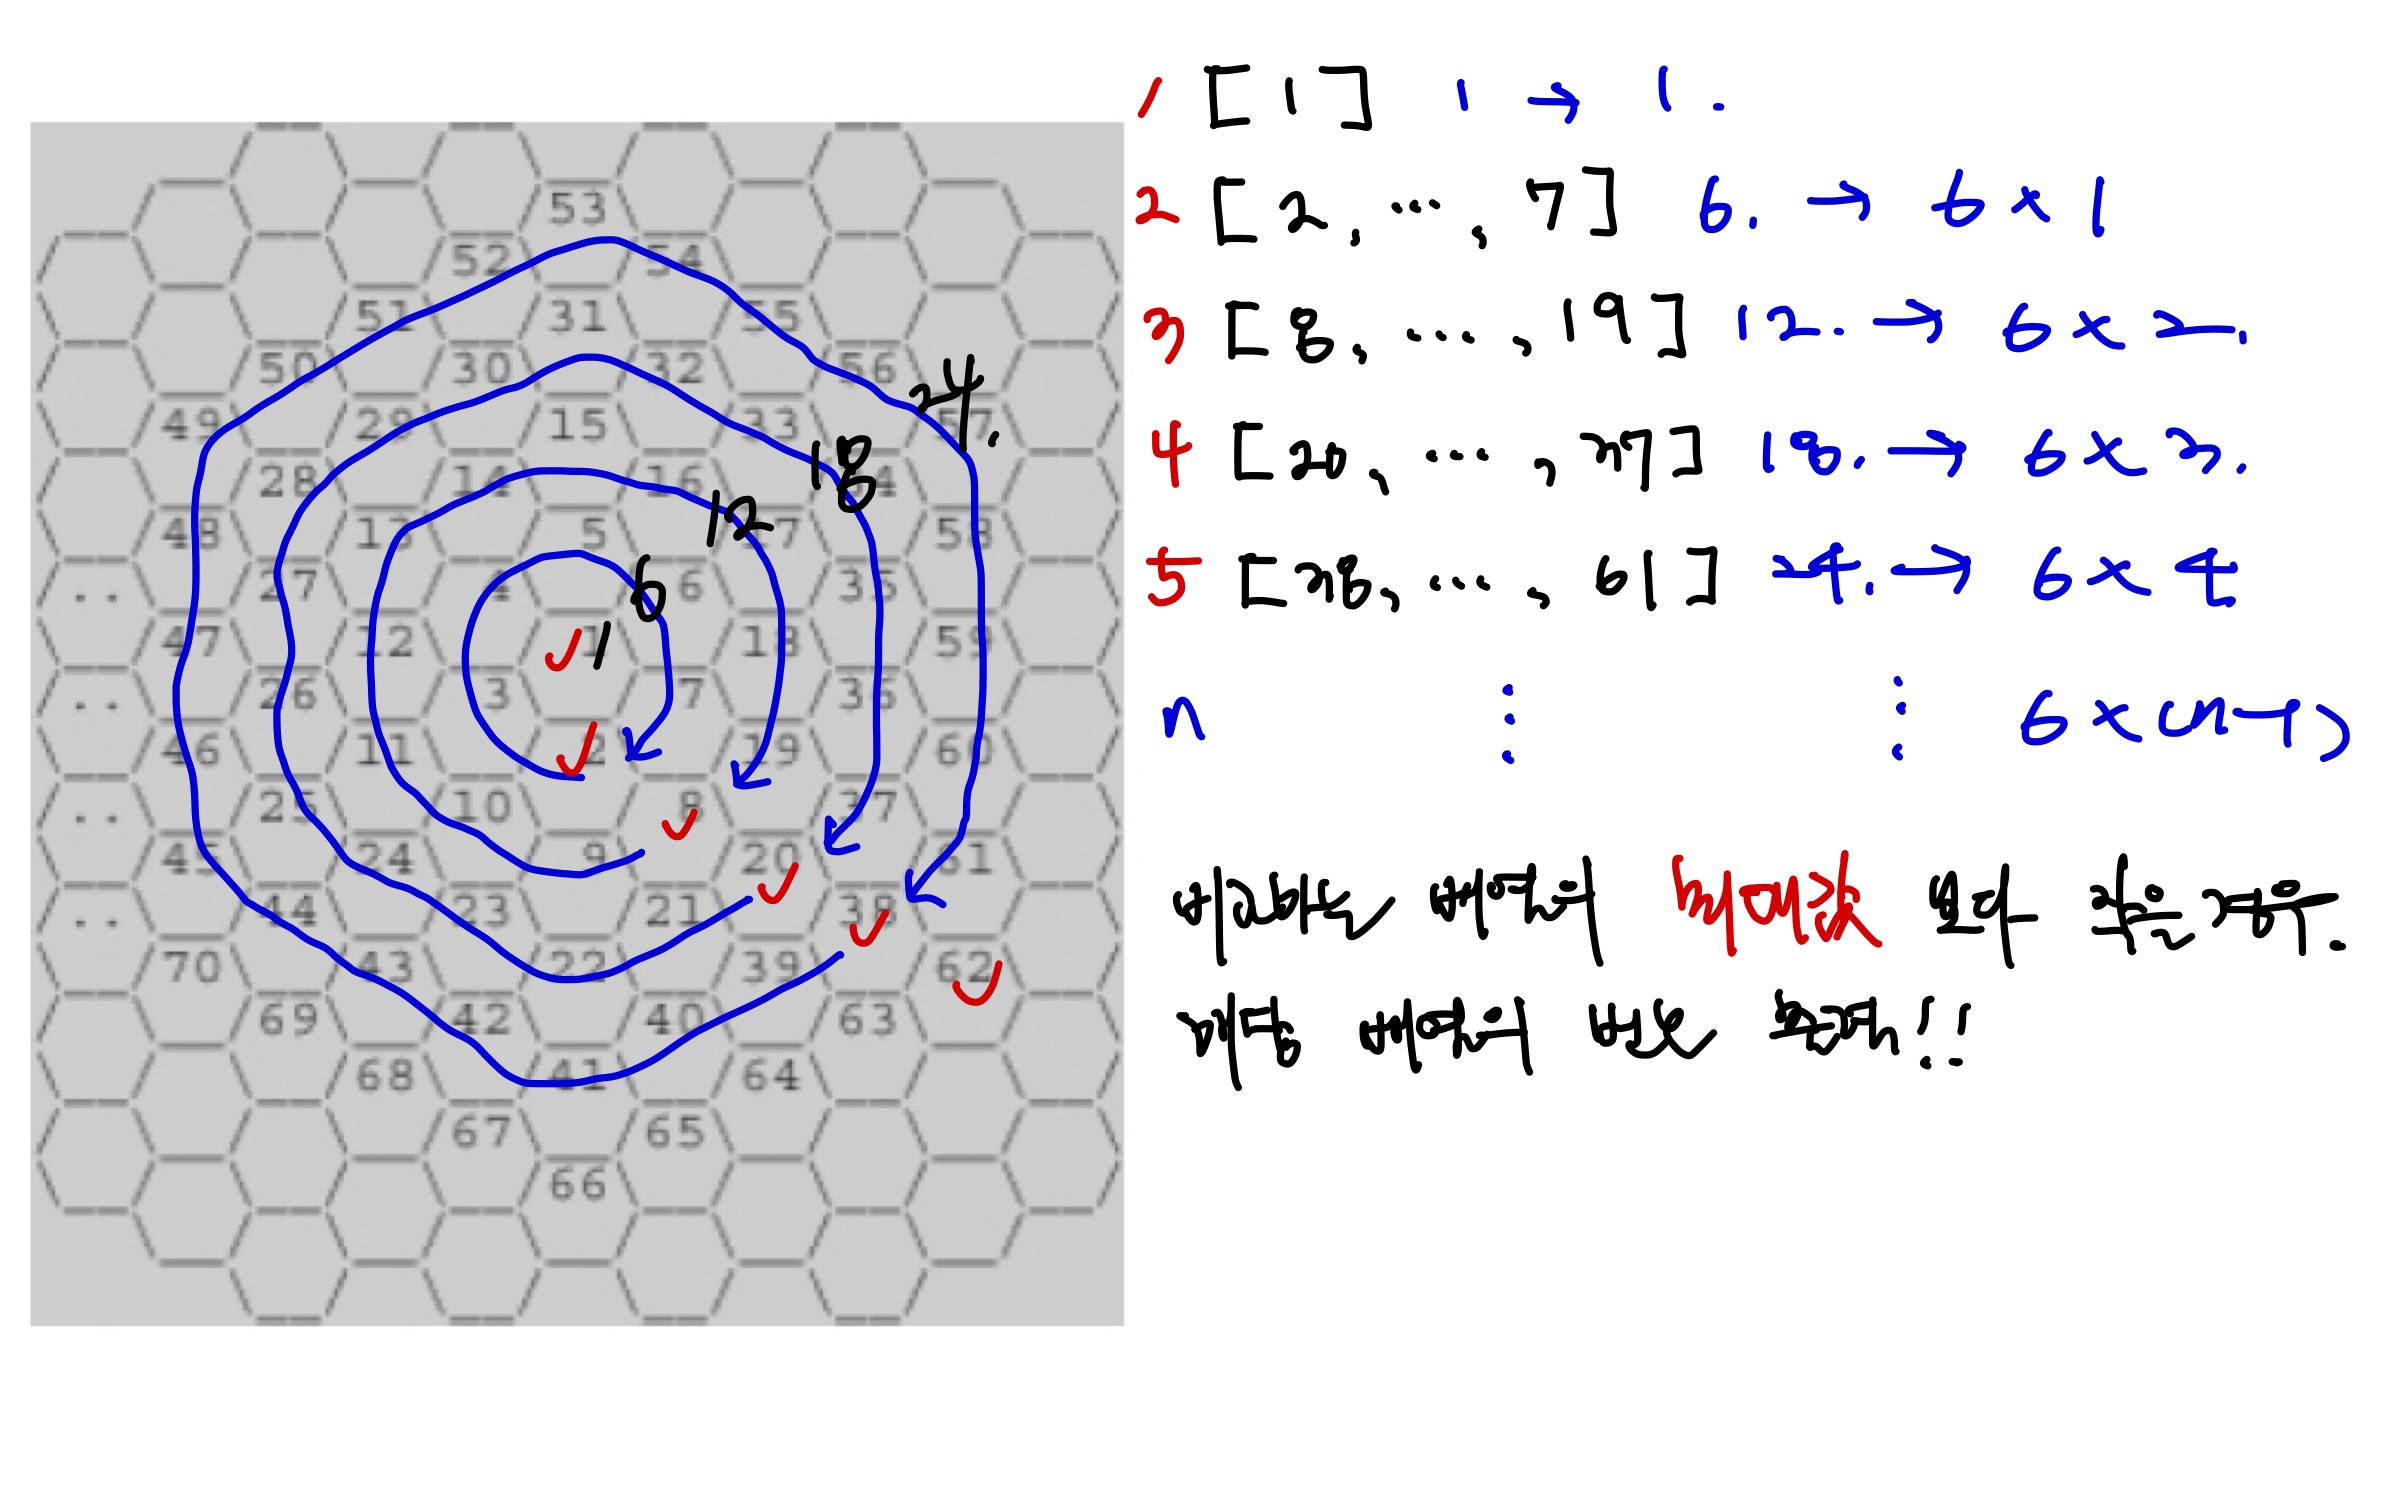 53
52 54
51 31 55
50 30 32 56
24.
49 29 15 33 57
18
28 14 16 34
12
48 13 5 17 58
6
.. 27 4 6 35
47 12 1 1 18 59
.. 26 3 7 36
46 11 2 19 60
.. 25 10 8 37
45 24 9 20 61
.. 44 23 21 38
70 43 22 39 62
69 42 40 63
68 41 64
67 65
66
1 [ 1 ] 1 → 1.
2 [ 2, ..., 7 ] 6. → 6 × 1
3 [ 8, ..., 19 ] 12. → 6 × 2.
4 [ 20, ..., 37 ] 18. → 6 × 3.
5 [ 38, ..., 61 ] 24. → 6 × 4
n ⋮ ⋮ 6 × (n-1)
비교하는 배열의 최대값 보다 작은 경우.
해당 배열의 번호 !!